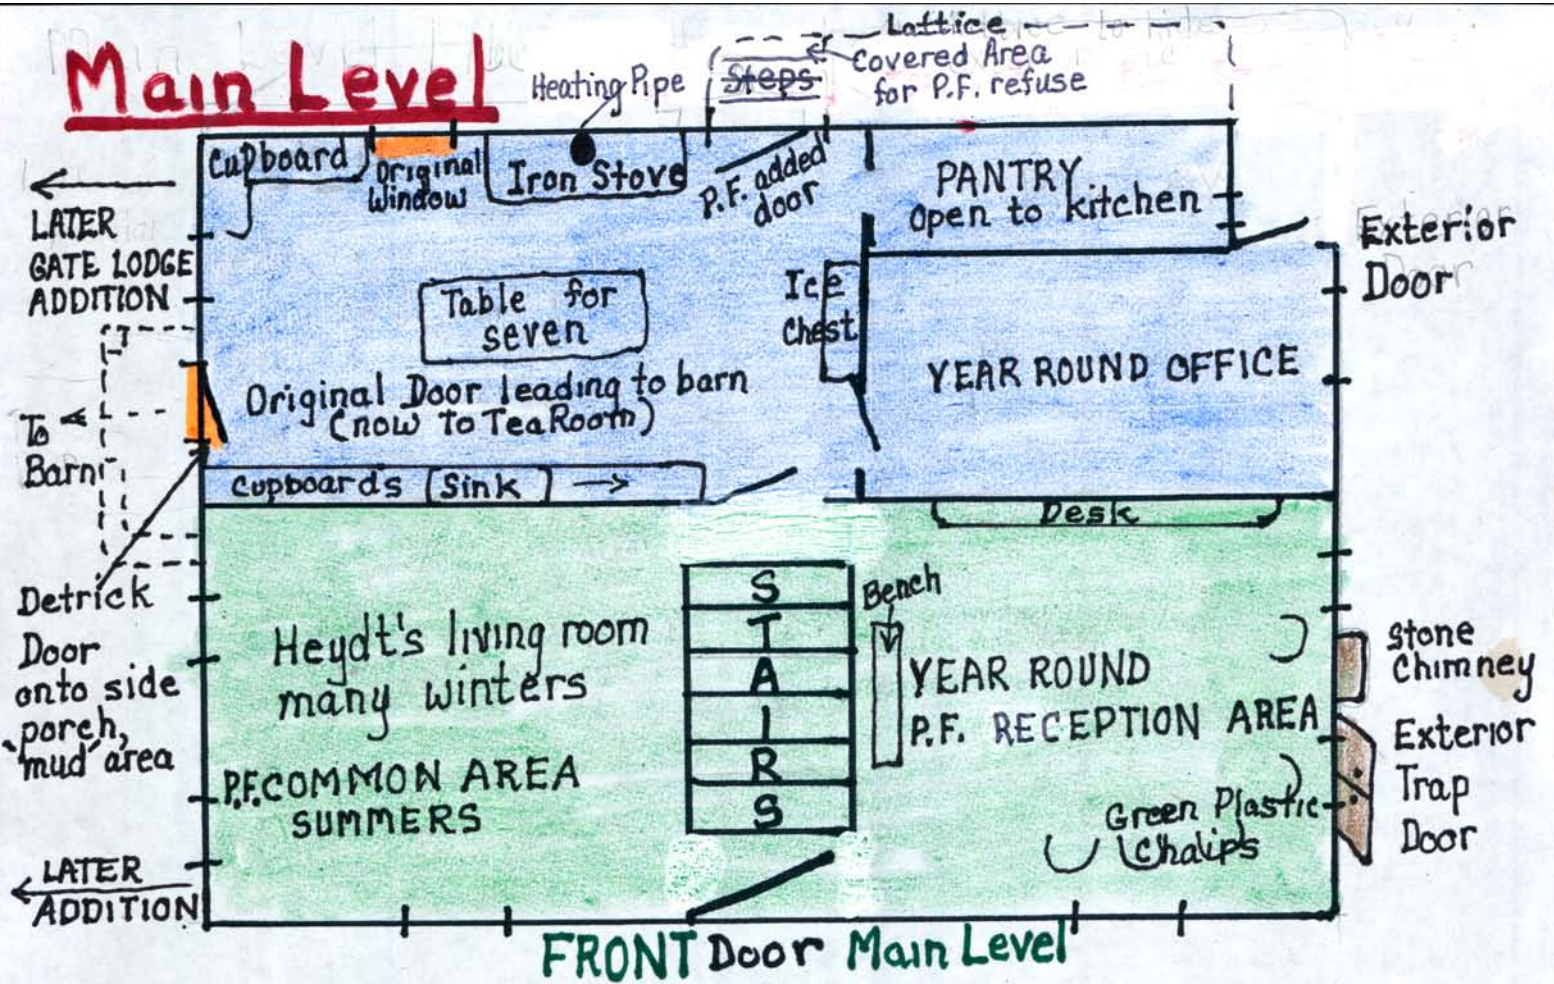 Main Level
Heating Pipe
Lattice
Steps
Covered Area
for P.F. refuse
Cupboard
Original
Window
Iron Stove
P.F. added
door
PANTRY
Open to kitchen
Exterior
Door
LATER
GATE LODGE
ADDITION
Table for
seven
Ice
Chest
YEAR ROUND OFFICE
Original Door leading to barn
(now to Tea Room)
To
Barn
Cupboards
Sink
Desk
Detrick
Door
onto side
porch,
"mud" area
Heydt's living room
many winters
P.F. COMMON AREA
SUMMERS
STAIRS
Bench
YEAR ROUND
P.F. RECEPTION AREA
Stone
Chimney
Exterior
Trap
Door
Green Plastic
Chaiips
LATER
ADDITION
FRONT Door Main Level